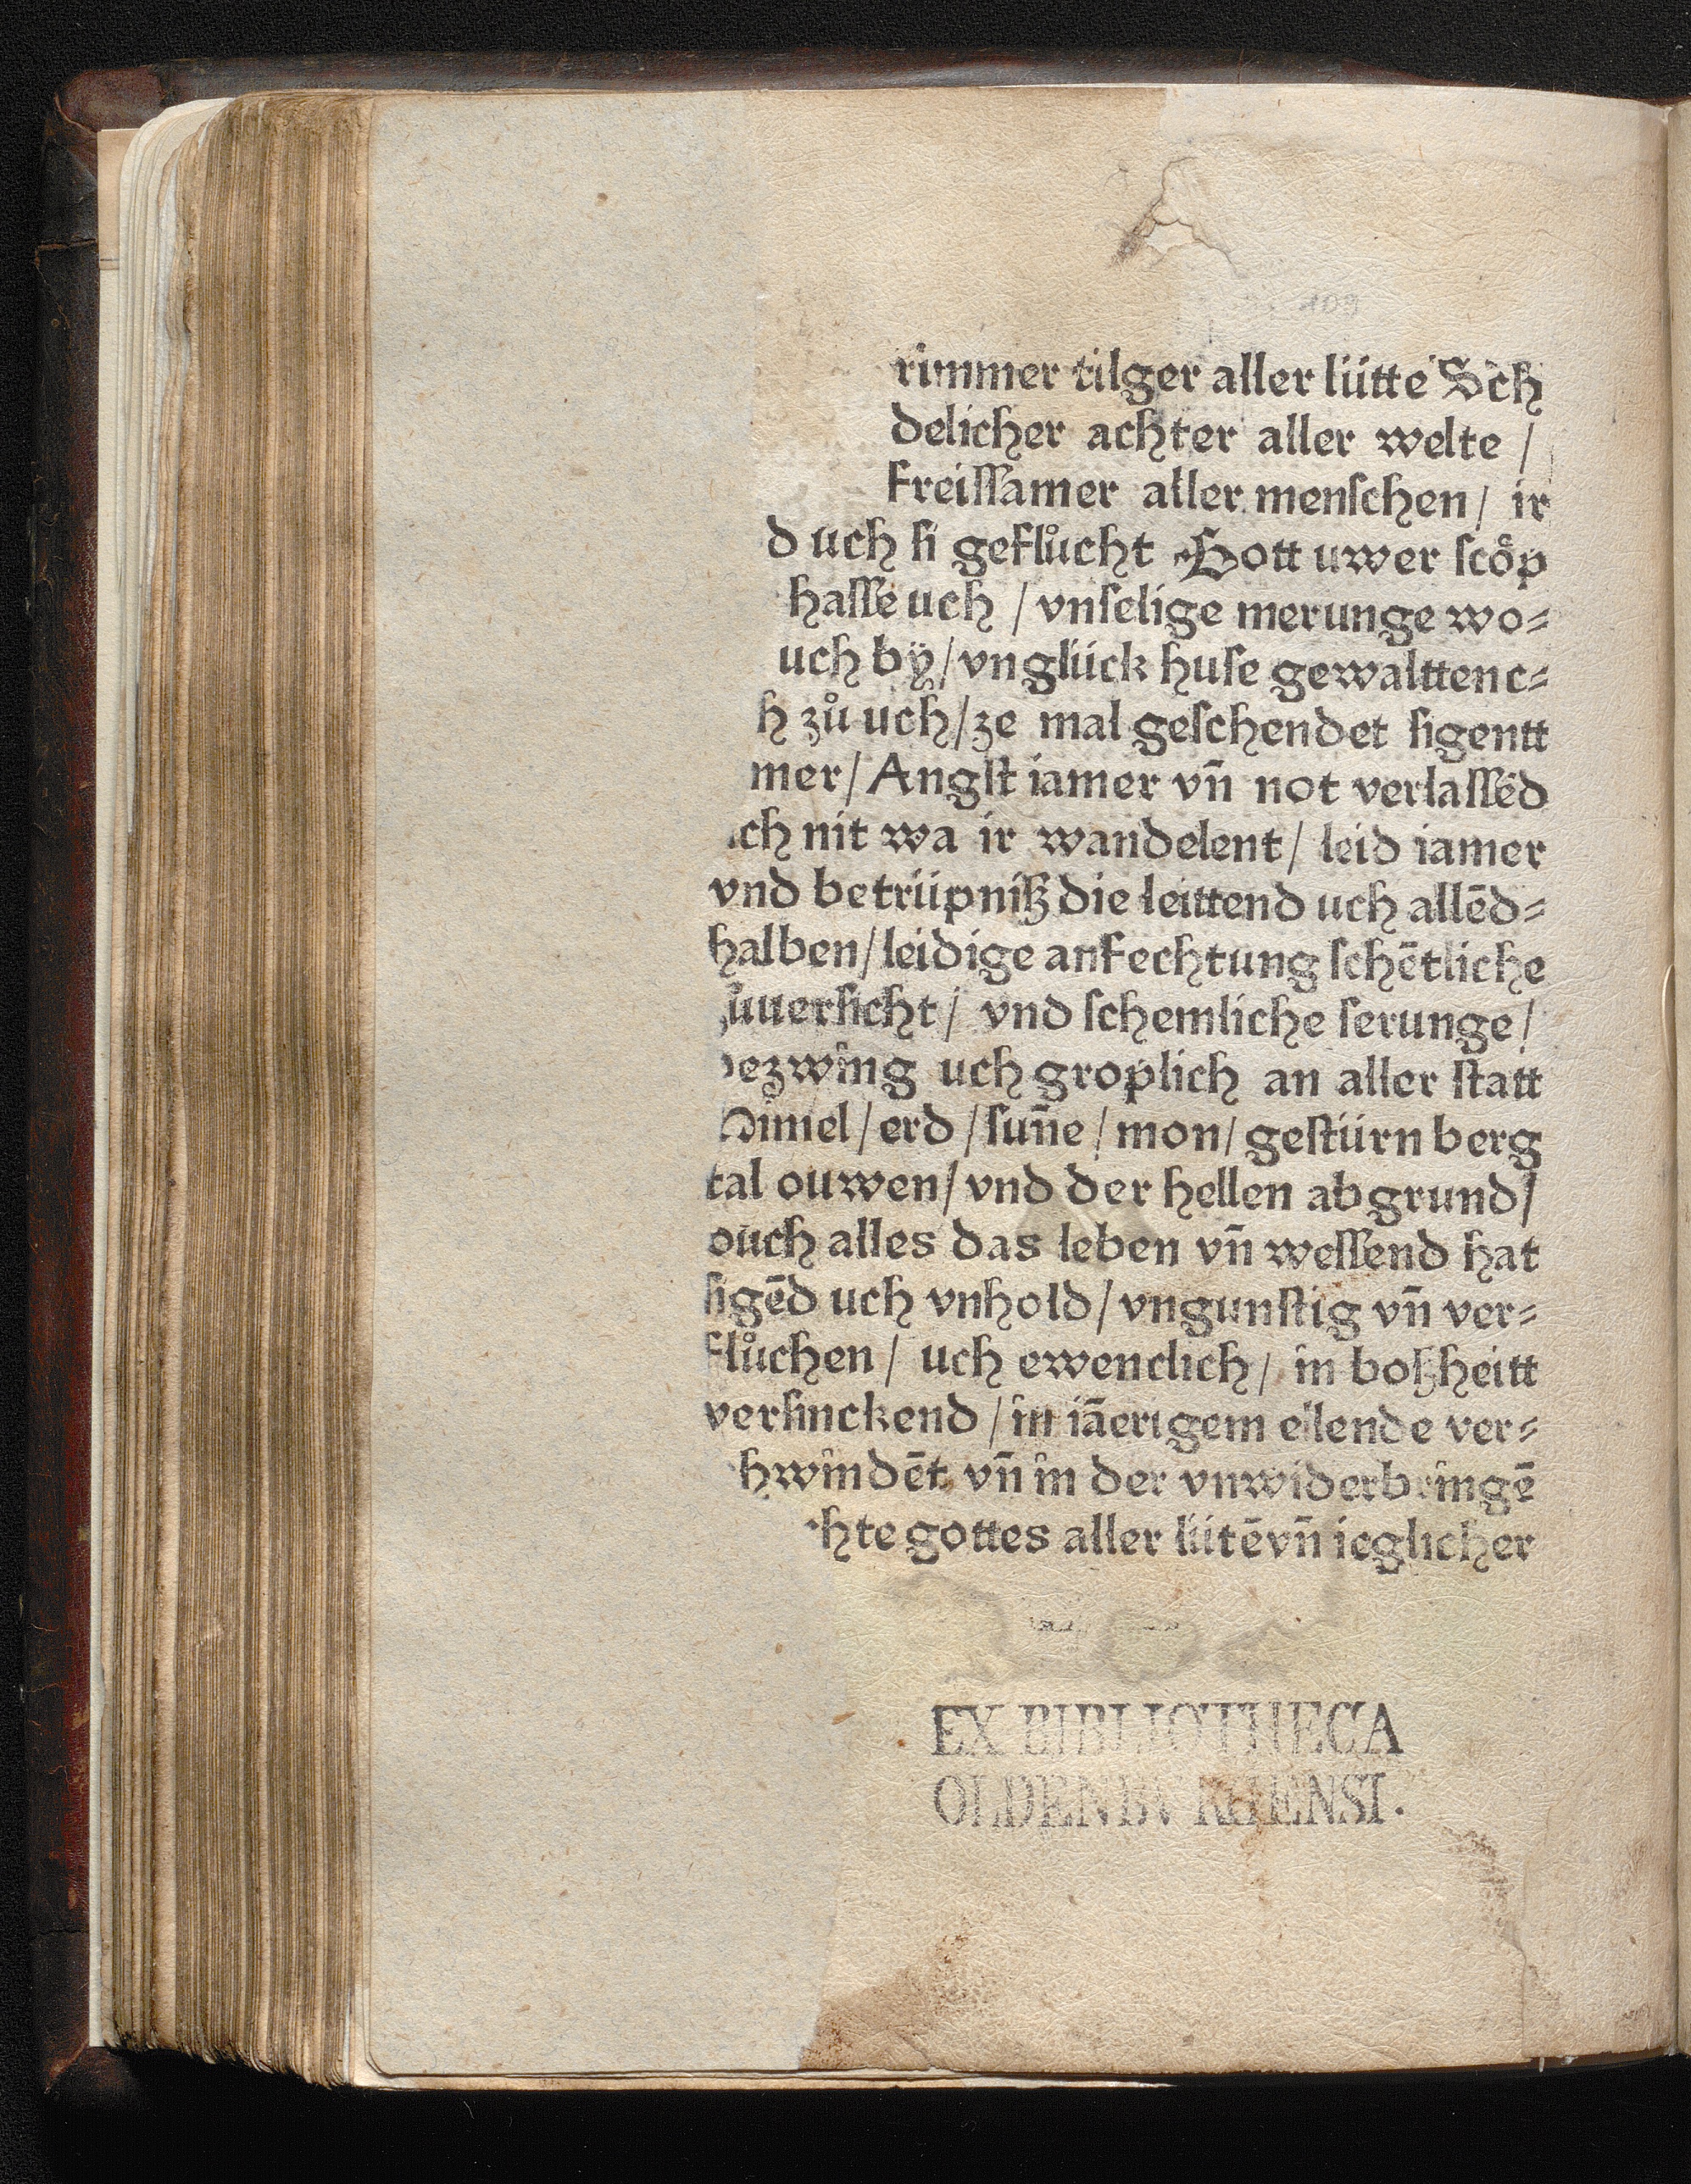 109
rimmer tilger aller lütte Sch
delicher achter aller welte /
freiſſamer aller menſchen / ir
d uch ſi geflůcht Gott uwer ſcöp
haſſe uch / vnſelige merunge wo⸗
uch bÿ / vnglück huſe gewalttenc⸗
h zů uch / ze mal geſchendet ſigentt
mer / Angſt iamer vn̄ not verlaſſēd
ch nit wa ir wandelent / leid iamer
vnd betrüpniß die leittend uch allēd⸗
halben / leidige anfechtung ſchētliche
ůuerſicht / vnd ſchemliche ſerunge /
bezwing uch groplich an aller ſtatt
Himel / erd / ſun̄e / mon / geſtürn berg
tal ouwen / vnd der hellen abgrund /
ouch alles das leben vn̄ weſſend hat
ſigēd uch vnhold / vngunſtig vn̄ ver⸗
flůchen / uch ewenclich / in boßheitt
verſinckend / in iāerigem ellende ver⸗
hwindēt vn̄ in der vnwiderbringē
hte gottes aller lütē vn̄ ieglicher
EX BIBLIOTHECA
OLDENBVRGENSI.